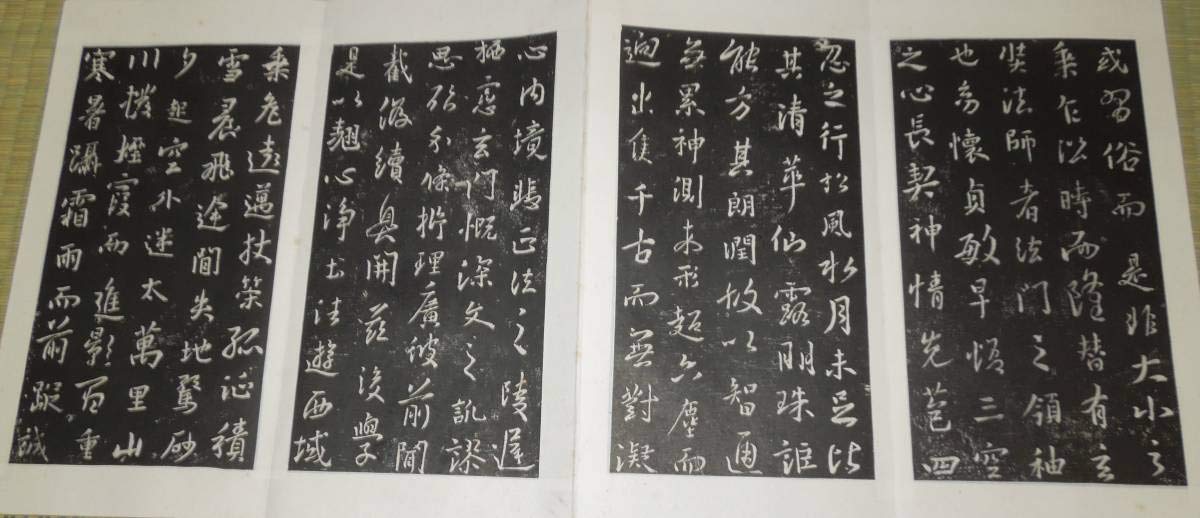 或習俗而是非大小之
乘乍沿時而隆替有玄
奘法師者法門之領袖
也幼懷貞敏早悟三空
之心長契神情先苞四
忍之行松風水月未足比
其清華仙露明珠詎
能方其朗潤故以智通
無累神測未形超六塵而
迥出隻千古而無對凝
心內境悲正法之陵遲
栖慮玄門慨深文之訛謬
思欲分條析理廣彼前聞
截偽續真開茲後學
是以翹心淨土往遊西域
乘危遠邁杖策孤征積
雪晨飛途間失地驚砂
夕起空外迷天萬里山
川撥煙霞而進影百重
寒暑躡霜雨而前蹤誠